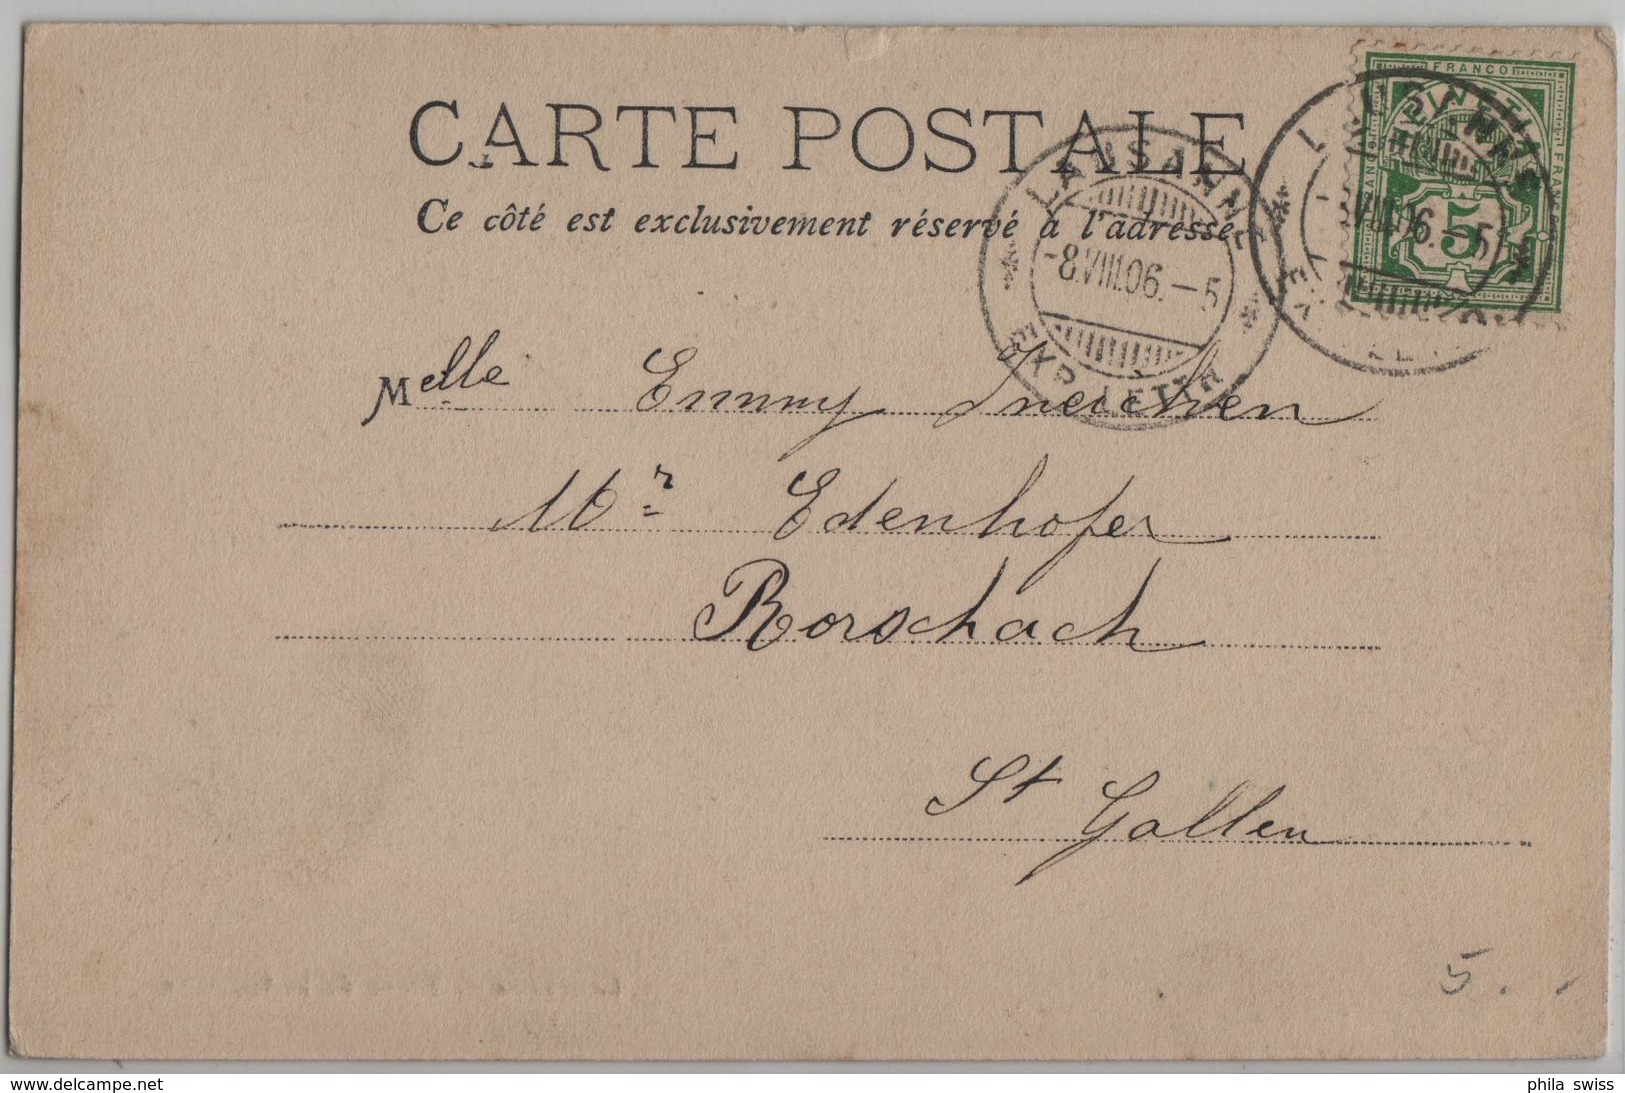 CARTE POSTALE
Ce côté est exclusivement réservé à l'adresse
FRANCO
5
LAUSANNE
-8.VIII.06.-5
EXP. LETTR.
VIII.06.-5
Melle Emmy
Mr Edenhofer
Rorschach
St Gallen
5.
www.delcampe.net
phila swiss